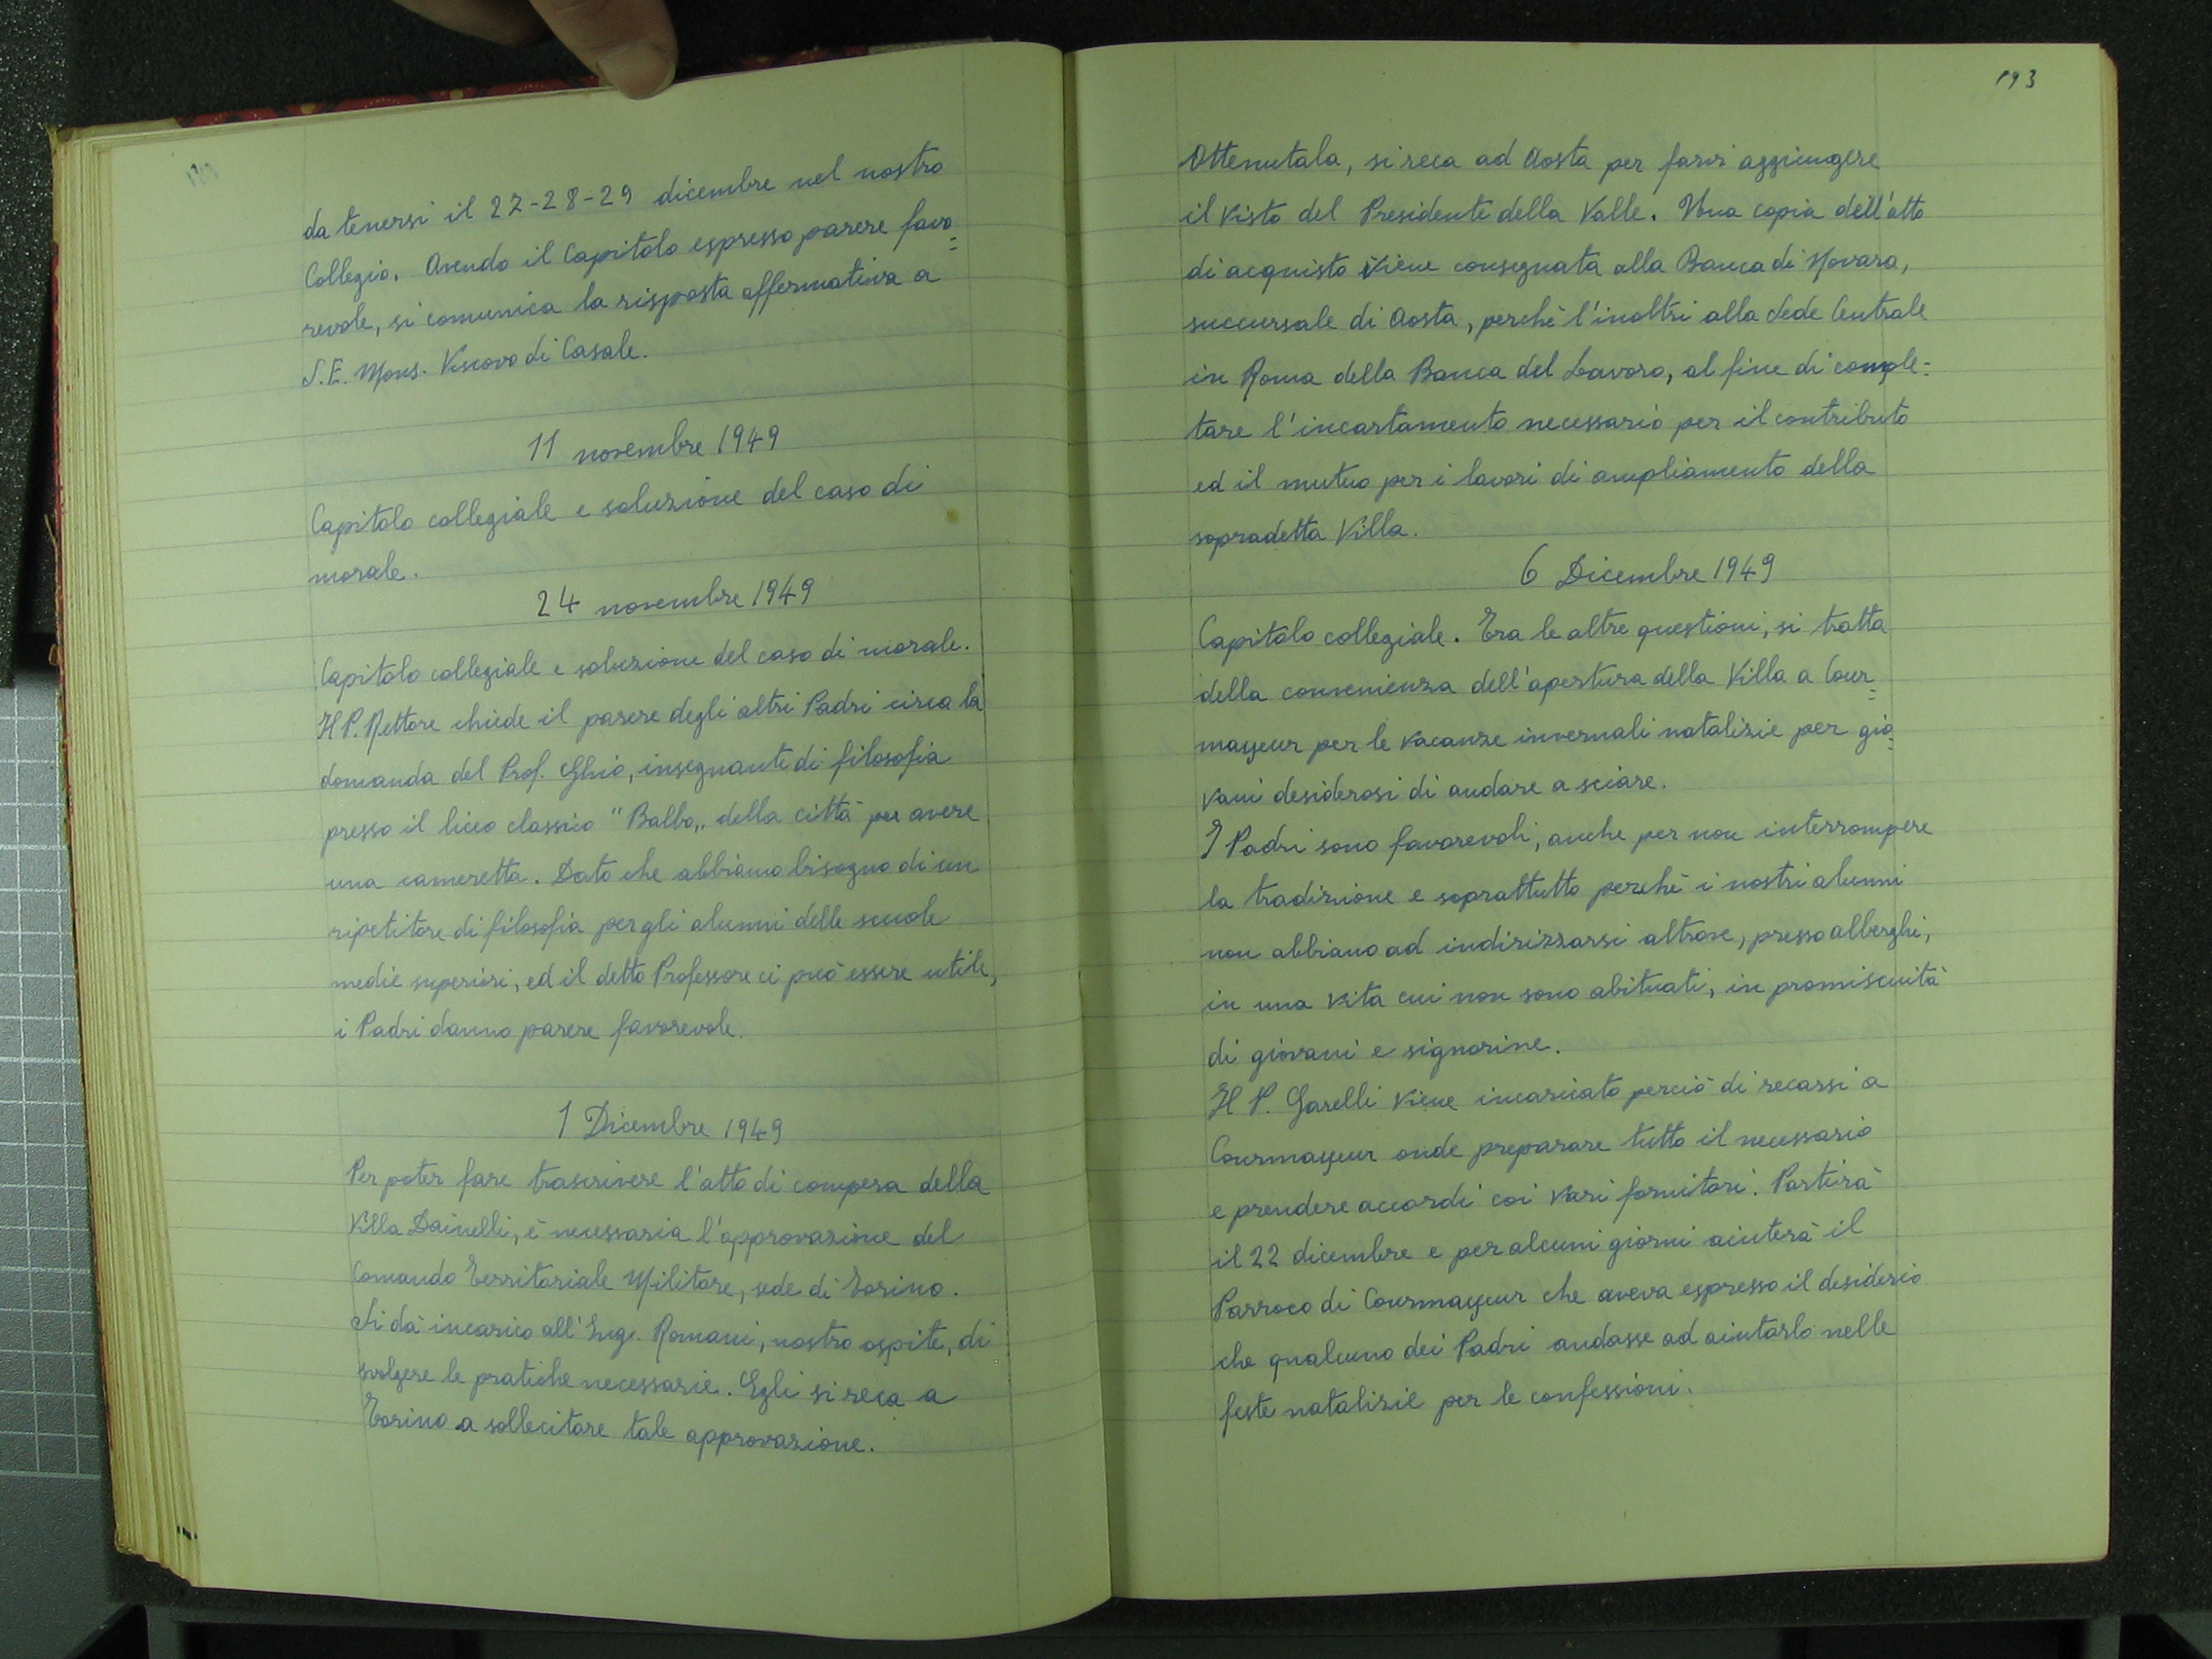 da tenersi il 27-28-29 dicembre nel nostro
Collegio. Avendo il Capitolo espresso parere favo=
revole, si comunica la risposta affermativa a
S.E. Mons. Vescovo di Casale.
11 novembre 1949
Capitolo collegiale e soluzione del caso di
morale.
24 novembre 1949
Capitolo collegiale e soluzione del caso di morale.
Il P. Rettore chiede il parere degli altri Padri circa la
domanda del Prof. Ghio, insegnante di filosofia
presso il liceo classico "Balbo„ della città per avere
una cameretta. Dato che abbiamo bisogno di un
ripetitore di filosofia per gli alunni delle scuole
medie superiori, ed il detto Professore ci può essere utile,
i Padri danno parere favorevole.
1 Dicembre 1949
Per poter fare trascrivere l'atto di compera della
Villa Dainelli, è necessaria l'approvazione del
Comando Territoriale Militare, sede di Torino.
Si dà incarico all'Ing. Romani, nostro ospite, di
svolgere le pratiche necessarie. Egli si reca a
Torino a sollecitare tale approvazione.
193
Ottenutala, si reca ad Aosta per farvi aggiungere
il visto del Presidente della Valle. Una copia dell'atto
di acquisto viene consegnata alla Banca di Novara,
succursale di Aosta, perchè l'inoltri alla Sede Centrale
in Roma della Banca del Lavoro, al fine di comple=
tare l'incartamento necessario per il contributo
ed il mutuo per i lavori di ampliamento della
sopradetta Villa.
6 Dicembre 1949
Capitolo collegiale. Tra le altre questioni, si tratta
della convenienza dell'apertura della Villa a Cour=
mayeur per le vacanze invernali natalizie per gio=
vani desiderosi di andare a sciare.
I Padri sono favorevoli, anche per non interrompere
la tradizione e soprattutto perchè i nostri alunni
non abbiano ad indirizzarsi altrove, presso alberghi,
in una vita cui non sono abituati, in promiscuità
di giovani e signorine.
Il P. Garelli viene incaricato perciò di recarsi a
Courmayeur onde preparare tutto il necessario
e prendere accordi coi vari fornitori. Partirà
il 22 dicembre e per alcuni giorni aiuterà il
Parroco di Courmayeur che aveva espresso il desiderio
che qualcuno dei Padri andasse ad aiutarlo nelle
feste natalizie per le confessioni.